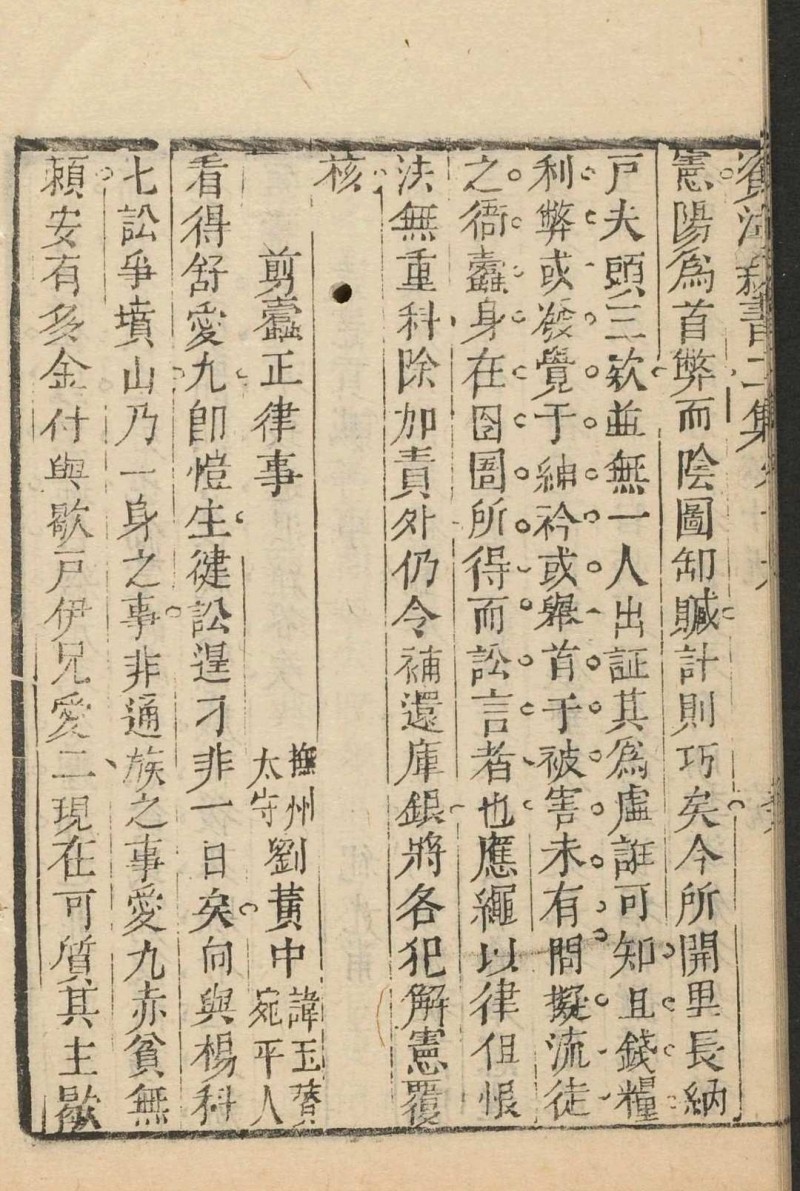 資治新書二集
憲陽為首弊而陰圖卸贓計則巧矣今所開里長納
戶夫頭三欵並無一人出証其為虛誑可知且錢糧
利弊或發覺于紳衿或舉首于被害未有問擬流徒
之衙蠹身在囹圄所得而訟言者也應繩以律但恨
法無重科除加責外仍令補還庫銀將各犯解憲覆
核
剪蠹正律事
撫州太守劉黃中諱玉瓚宛平人
看得舒愛九即愷生健訟逞刁非一日矣向與楊科
七訟爭墳山乃一身之事非通族之事愛九赤貧無
賴安有多金付與歇戶伊兄愛二現在可質其主歇